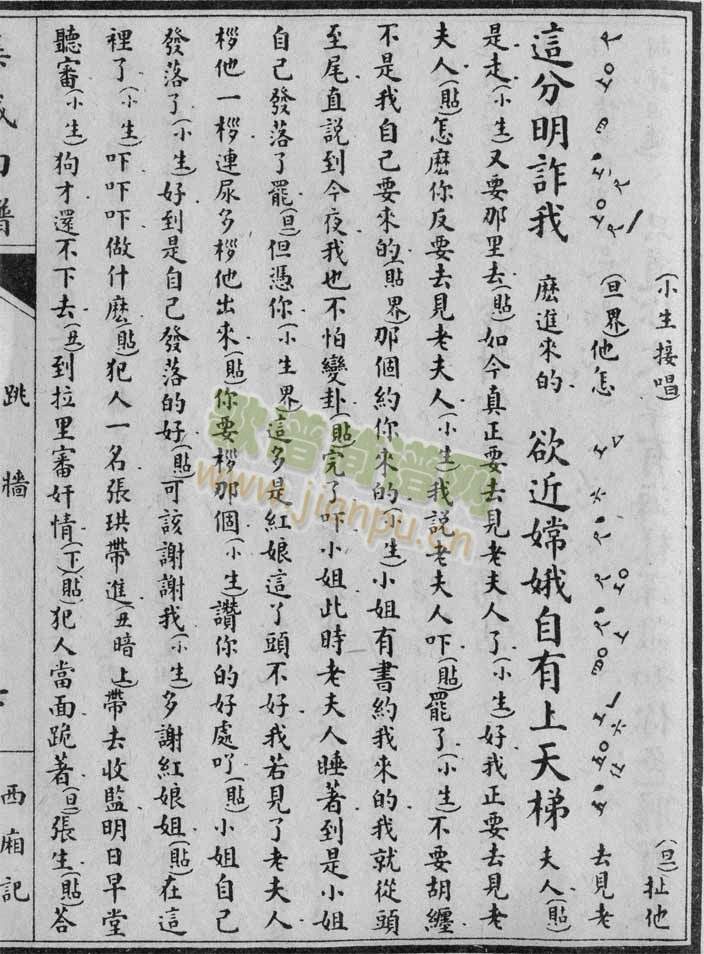 (小生接唱)
(旦)扯他
(旦界)他怎
去見老
這分明詐我 麽進來的 欲近嫦娥自有上天梯 夫人(貼)
是走(小生)又要那里去(貼)如今真正要去見老夫人了(小生)好我正要去見老
夫人(貼)怎麽你反要去見老夫人(小生)我説老夫人吓(貼)罷了(小生)不要胡纏
不是我自己要來的(貼界)那個約你來的(小生)小姐有書約我來的我就從頭
至尾直説到今夜我也不怕變卦(貼)完了吓小姐此時老夫人睡著到是小姐
自己發落了罷(旦)但憑你(小生界)這多是紅娘這丫頭不好我若見了老夫人
桚他一桚連尿多桚他出來(貼)你要桚那個(小生)讚你的好處吖(貼)小姐自己
發落了(小生)好到是自己發落的好(貼)可該謝謝我(小生)多謝紅娘姐(貼)在這
裡了(小生)吓吓吓做什麽(貼)犯人一名張珙帶進(丑暗上)帶去收監明日早堂
聽審(小生)狗才還不下去(丑)到拉里審奸情(下)(貼)犯人當面跪著(旦)張生(貼)答
集成曲譜
跳牆
西廂記
歌谱简谱网
www.jianpu.cn